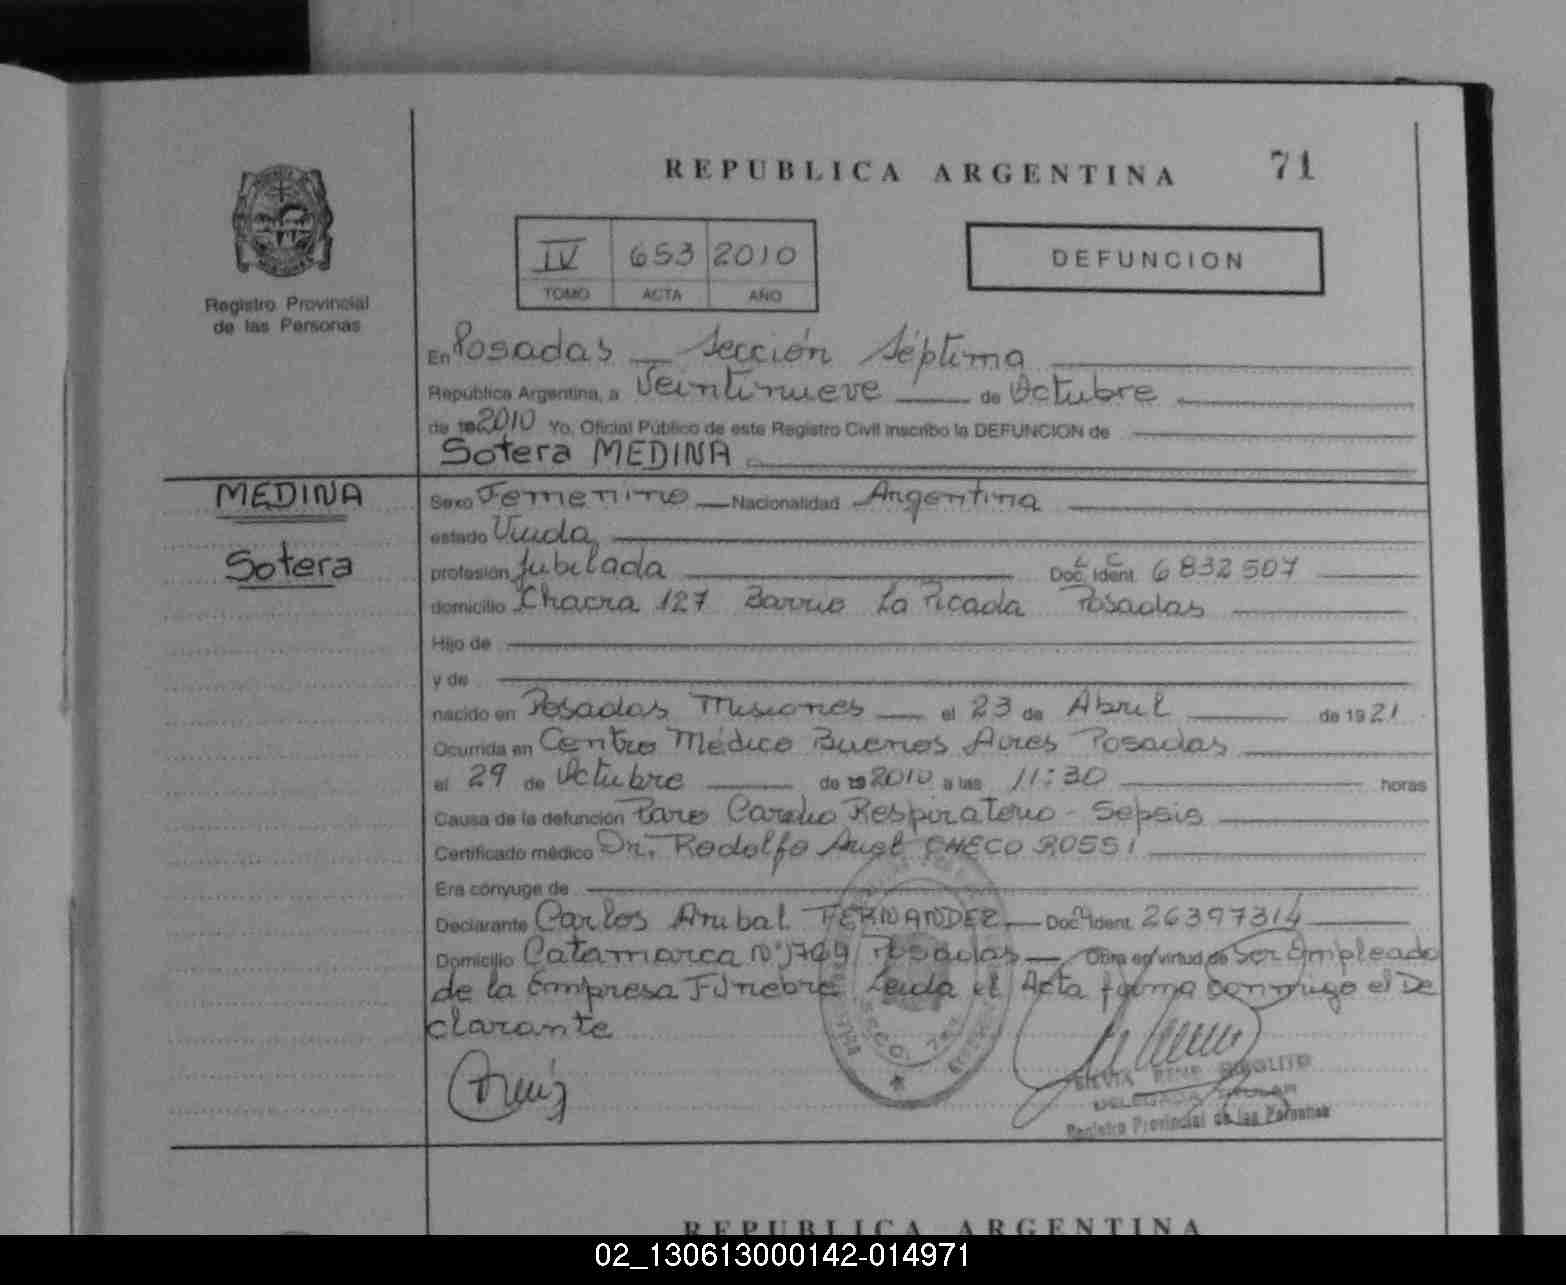 REPUBLICA ARGENTINA 71
IV 653 2010
TOMO ACTA AÑO
DEFUNCION
Registro Provincial
de las Personas
En Posadas Sección Séptima
República Argentina, a Veintinueve de Octubre
de 192010 Yo, Oficial Público de este Registro Civil inscribo la DEFUNCION de
Sotera MEDINA
MEDINA
Sotera
Sexo Femenino Nacionalidad Argentina
estado Viuda
profesión Jubilada Doc. Ident. L C 6832507
domicilio Chacra 127 Barrio La Picada Posadas
Hijo de
y de
nacido en Posadas Misiones el 23 de Abril de 1921
Ocurrida en Centro Médico Buenos Aires Posadas
el 29 de Octubre de 192010 a las 11:30 horas
Causa de la defunción Paro Cardio Respiratorio - Sepsis
Certificado médico Dr. Rodolfo Ariel CHECO ROSSI
Era cónyuge de
Declarante Carlos Anibal FERNANDEZ Doc. Ident. 26397314
Domicilio Catamarca Nº 1799 Posadas Obra en virtud de Ser Empleado
de la Empresa Fúnebre Leida el Acta firma conmigo el De
clarante
SILVIA RENE
DELEGADA TITULAR
Registro Provincial de las Personas
REPUBLICA ARGENTINA
02_130613000142-014971